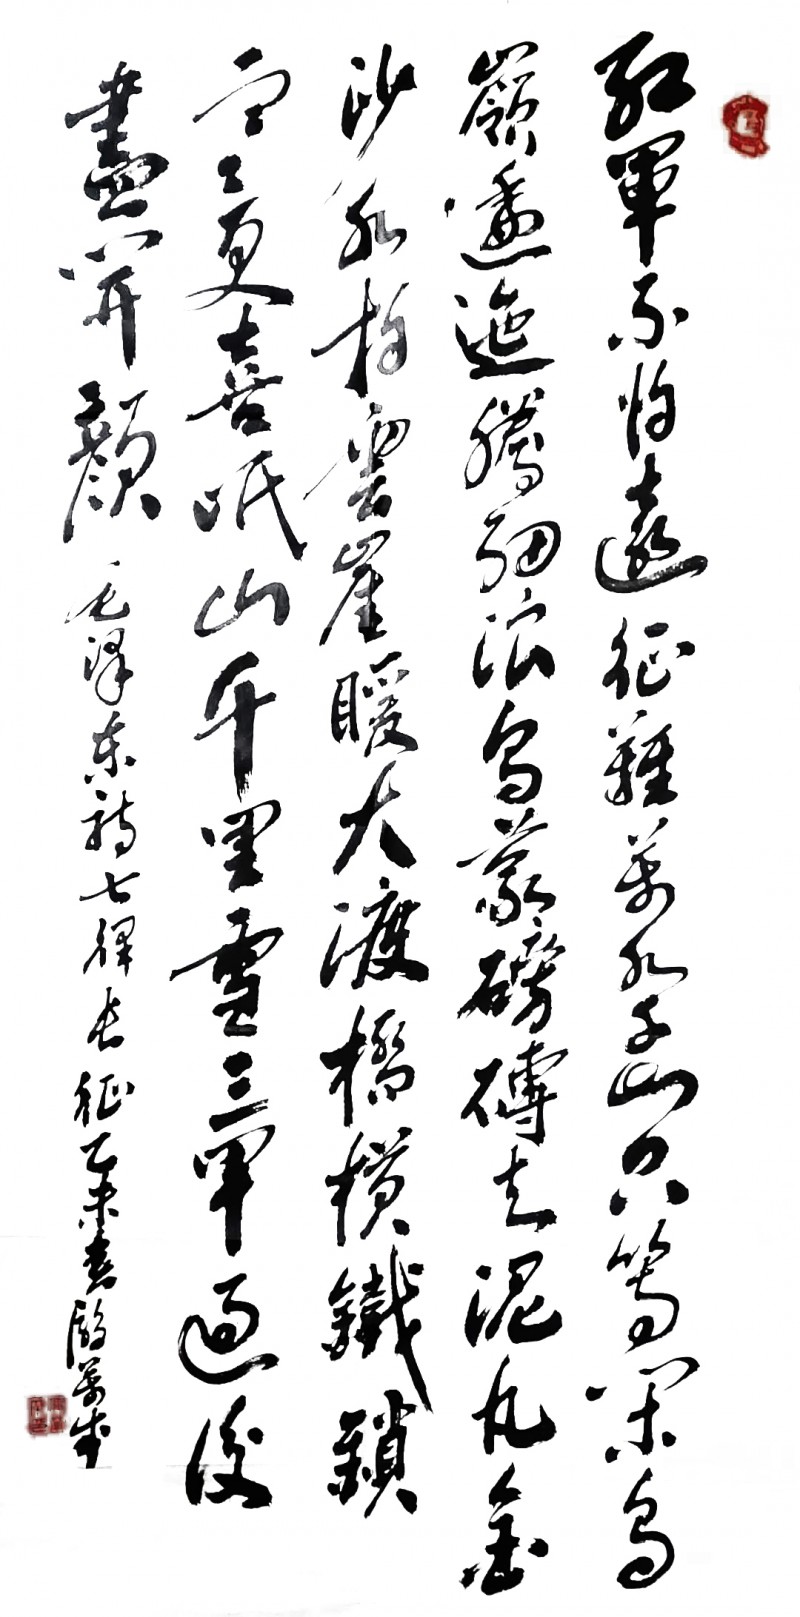 紅軍不怕遠征難萬水千山只等閑烏
嶺逶迤騰細浪烏蒙磅礴走泥丸金
沙水拍雲崖暖大渡橋橫鐵鎖
寒更喜岷山千里雪三軍過後
盡開顏 毛澤東詩七律長征乙未春